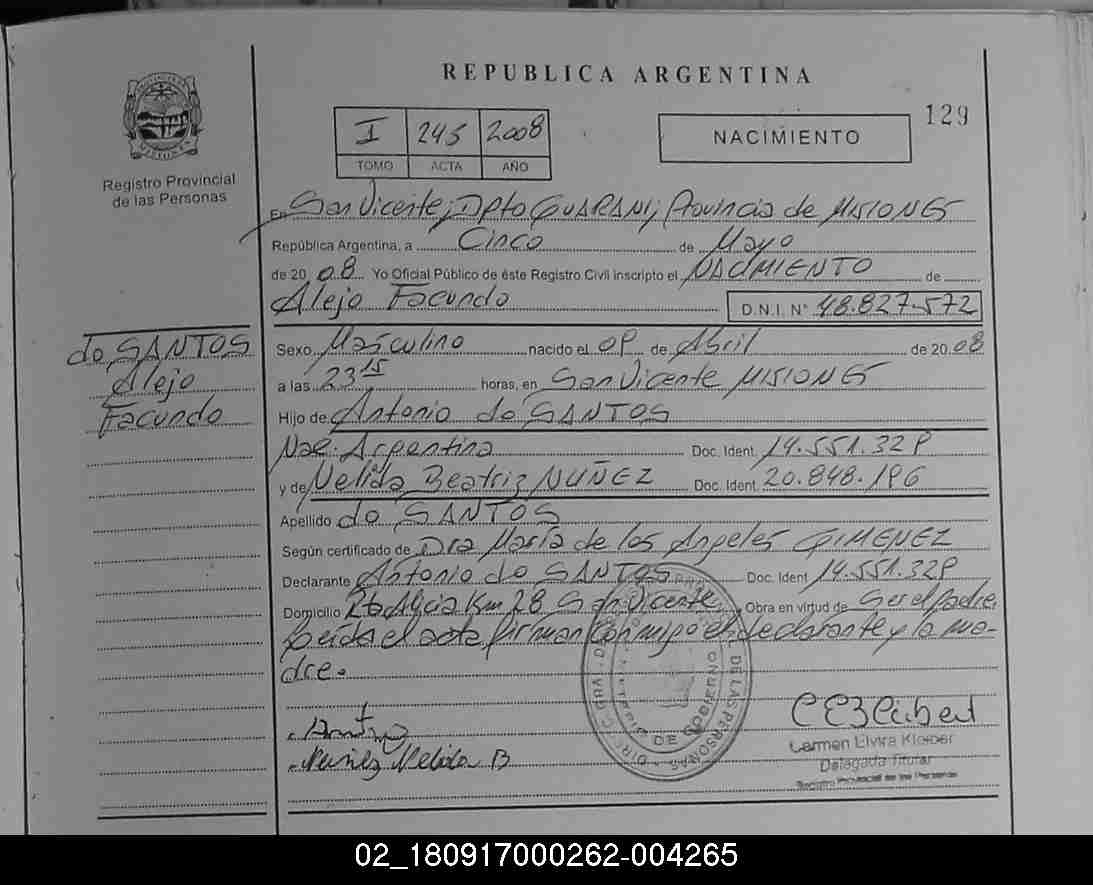 REPUBLICA ARGENTINA
129
I 245 2008
TOMO ACTA AÑO
NACIMIENTO
PROVINCIA DE MISIONES
Registro Provincial
de las Personas
En San Vicente, Dpto GUARANI, Provincia de MISIONES
República Argentina, a Cinco de Mayo
de 2008 Yo Oficial Público de éste Registro Civil inscripto el NACIMIENTO de
Alejo Facundo D.N.I. N° 48.827.572
do SANTOS
Alejo
Facundo
Sexo Masculino nacido el 09 de Abril de 2008
a las 23 15 horas, en San Vicente MISIONES
Hijo de Antonio do SANTOS
Nac. Argentina Doc. Ident. 14.551.329
y de Nelida Beatriz NUÑEZ Doc. Ident. 20.848.196
Apellido do SANTOS
Según certificado de Dra Maria de los Angeles GIMENEZ
Declarante Antonio do SANTOS Doc. Ident 14.551.329
Domicilio Km 28 San Vicente, Obra en virtud de Ser el padre,
leida el acta, firman conmigo el declarante y la ma-
dre.
DE LAS PERSONAS
Nuñez Nelida B
Carmen Elvira Kleiber
Delegada Titular
Registro Provincial de las Personas
02_180917000262-004265